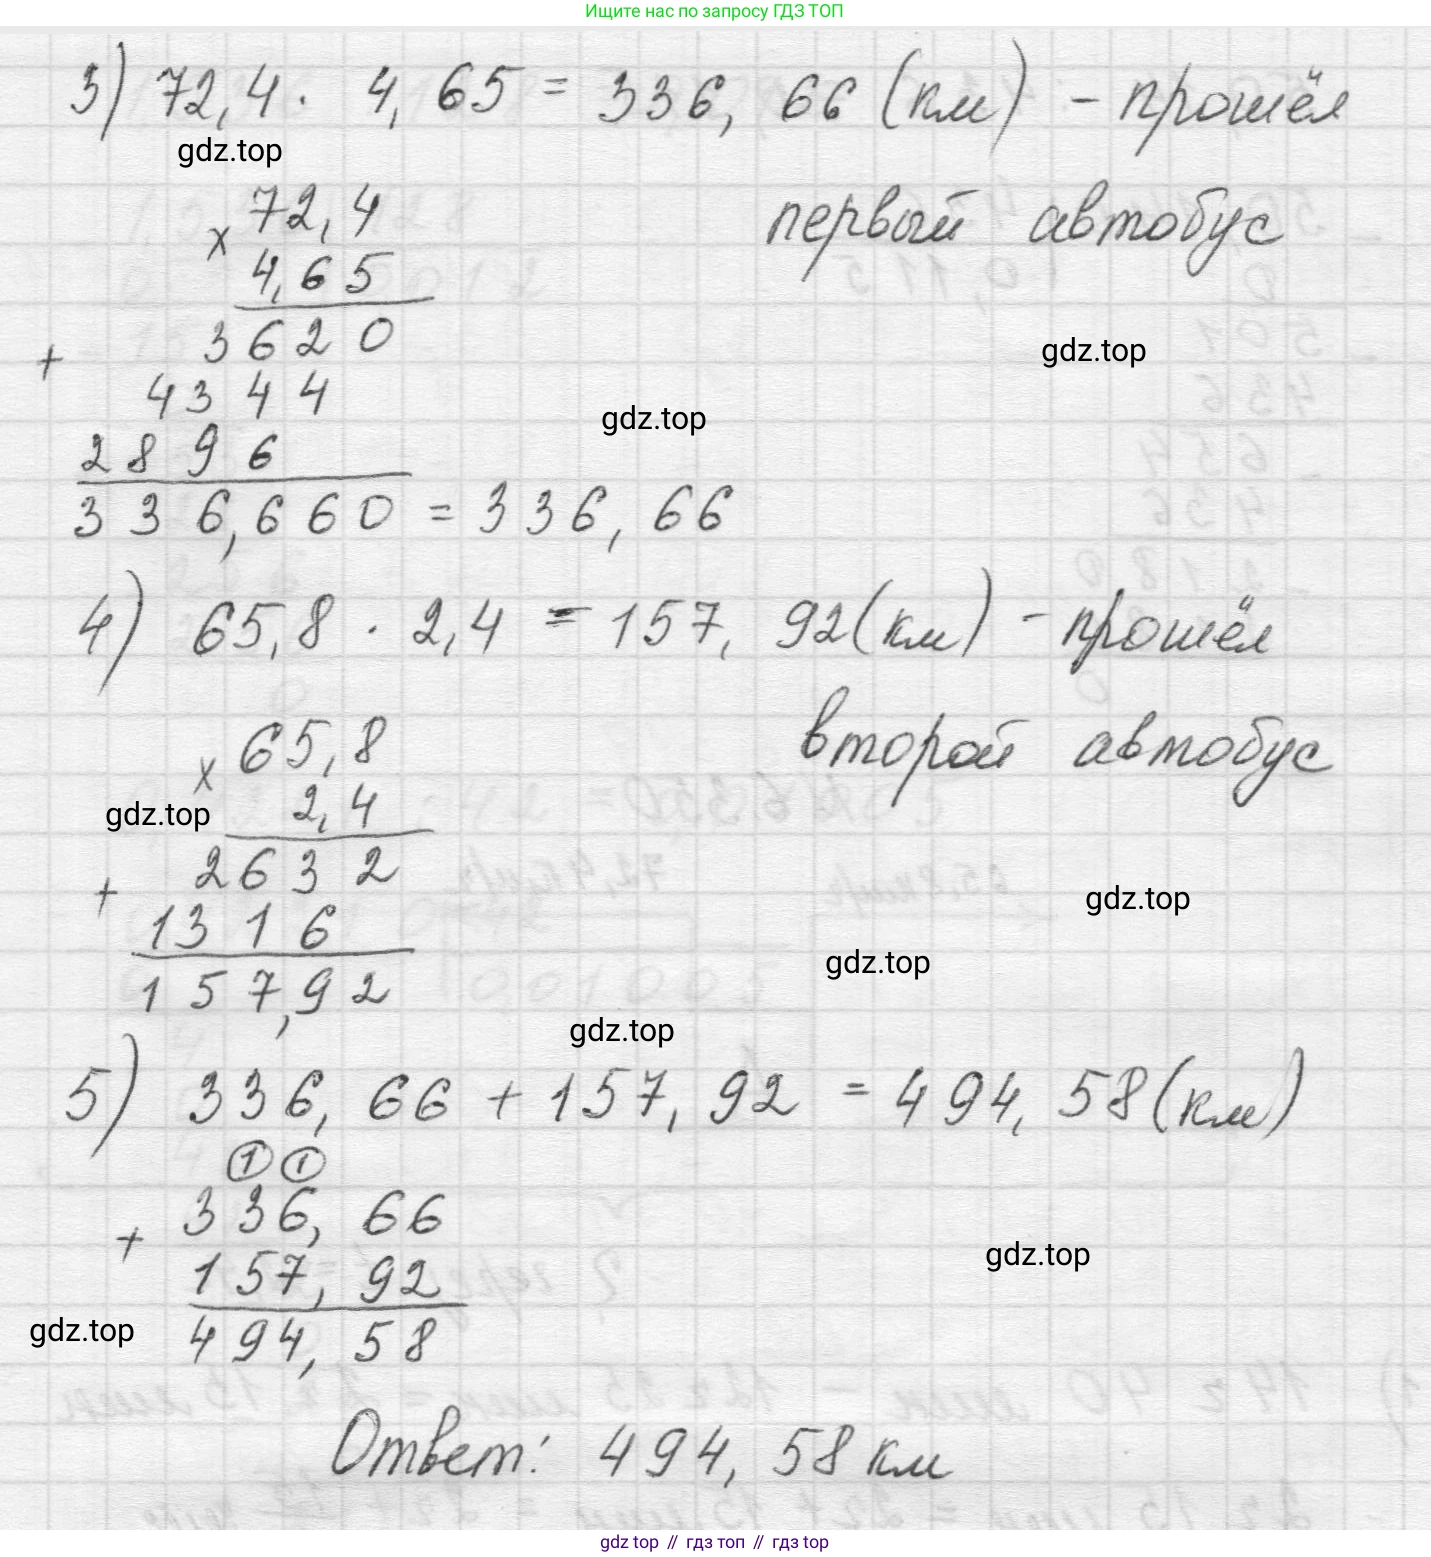 Ищите нас по запросу ГДЗ ТОП
3) 72,4 · 4,65 = 336,66 (км) - прошёл
gdz.top
первый автобус
× 72,4
4,65
3620
gdz.top
+ 4344
gdz.top
2896
336,660 = 336,66
4) 65,8 · 2,4 = 157,92 (км) - прошёл
второй автобус
× 65,8
gdz.top
2,4
+ 2632
gdz.top
1316
gdz.top
157,92
gdz.top
5) 336,66 + 157,92 = 494,58 (км)
1 1
+ 336,66
gdz.top
157,92
gdz.top
494,58
Ответ: 494,58 км
gdz top // гдз топ // гдз top